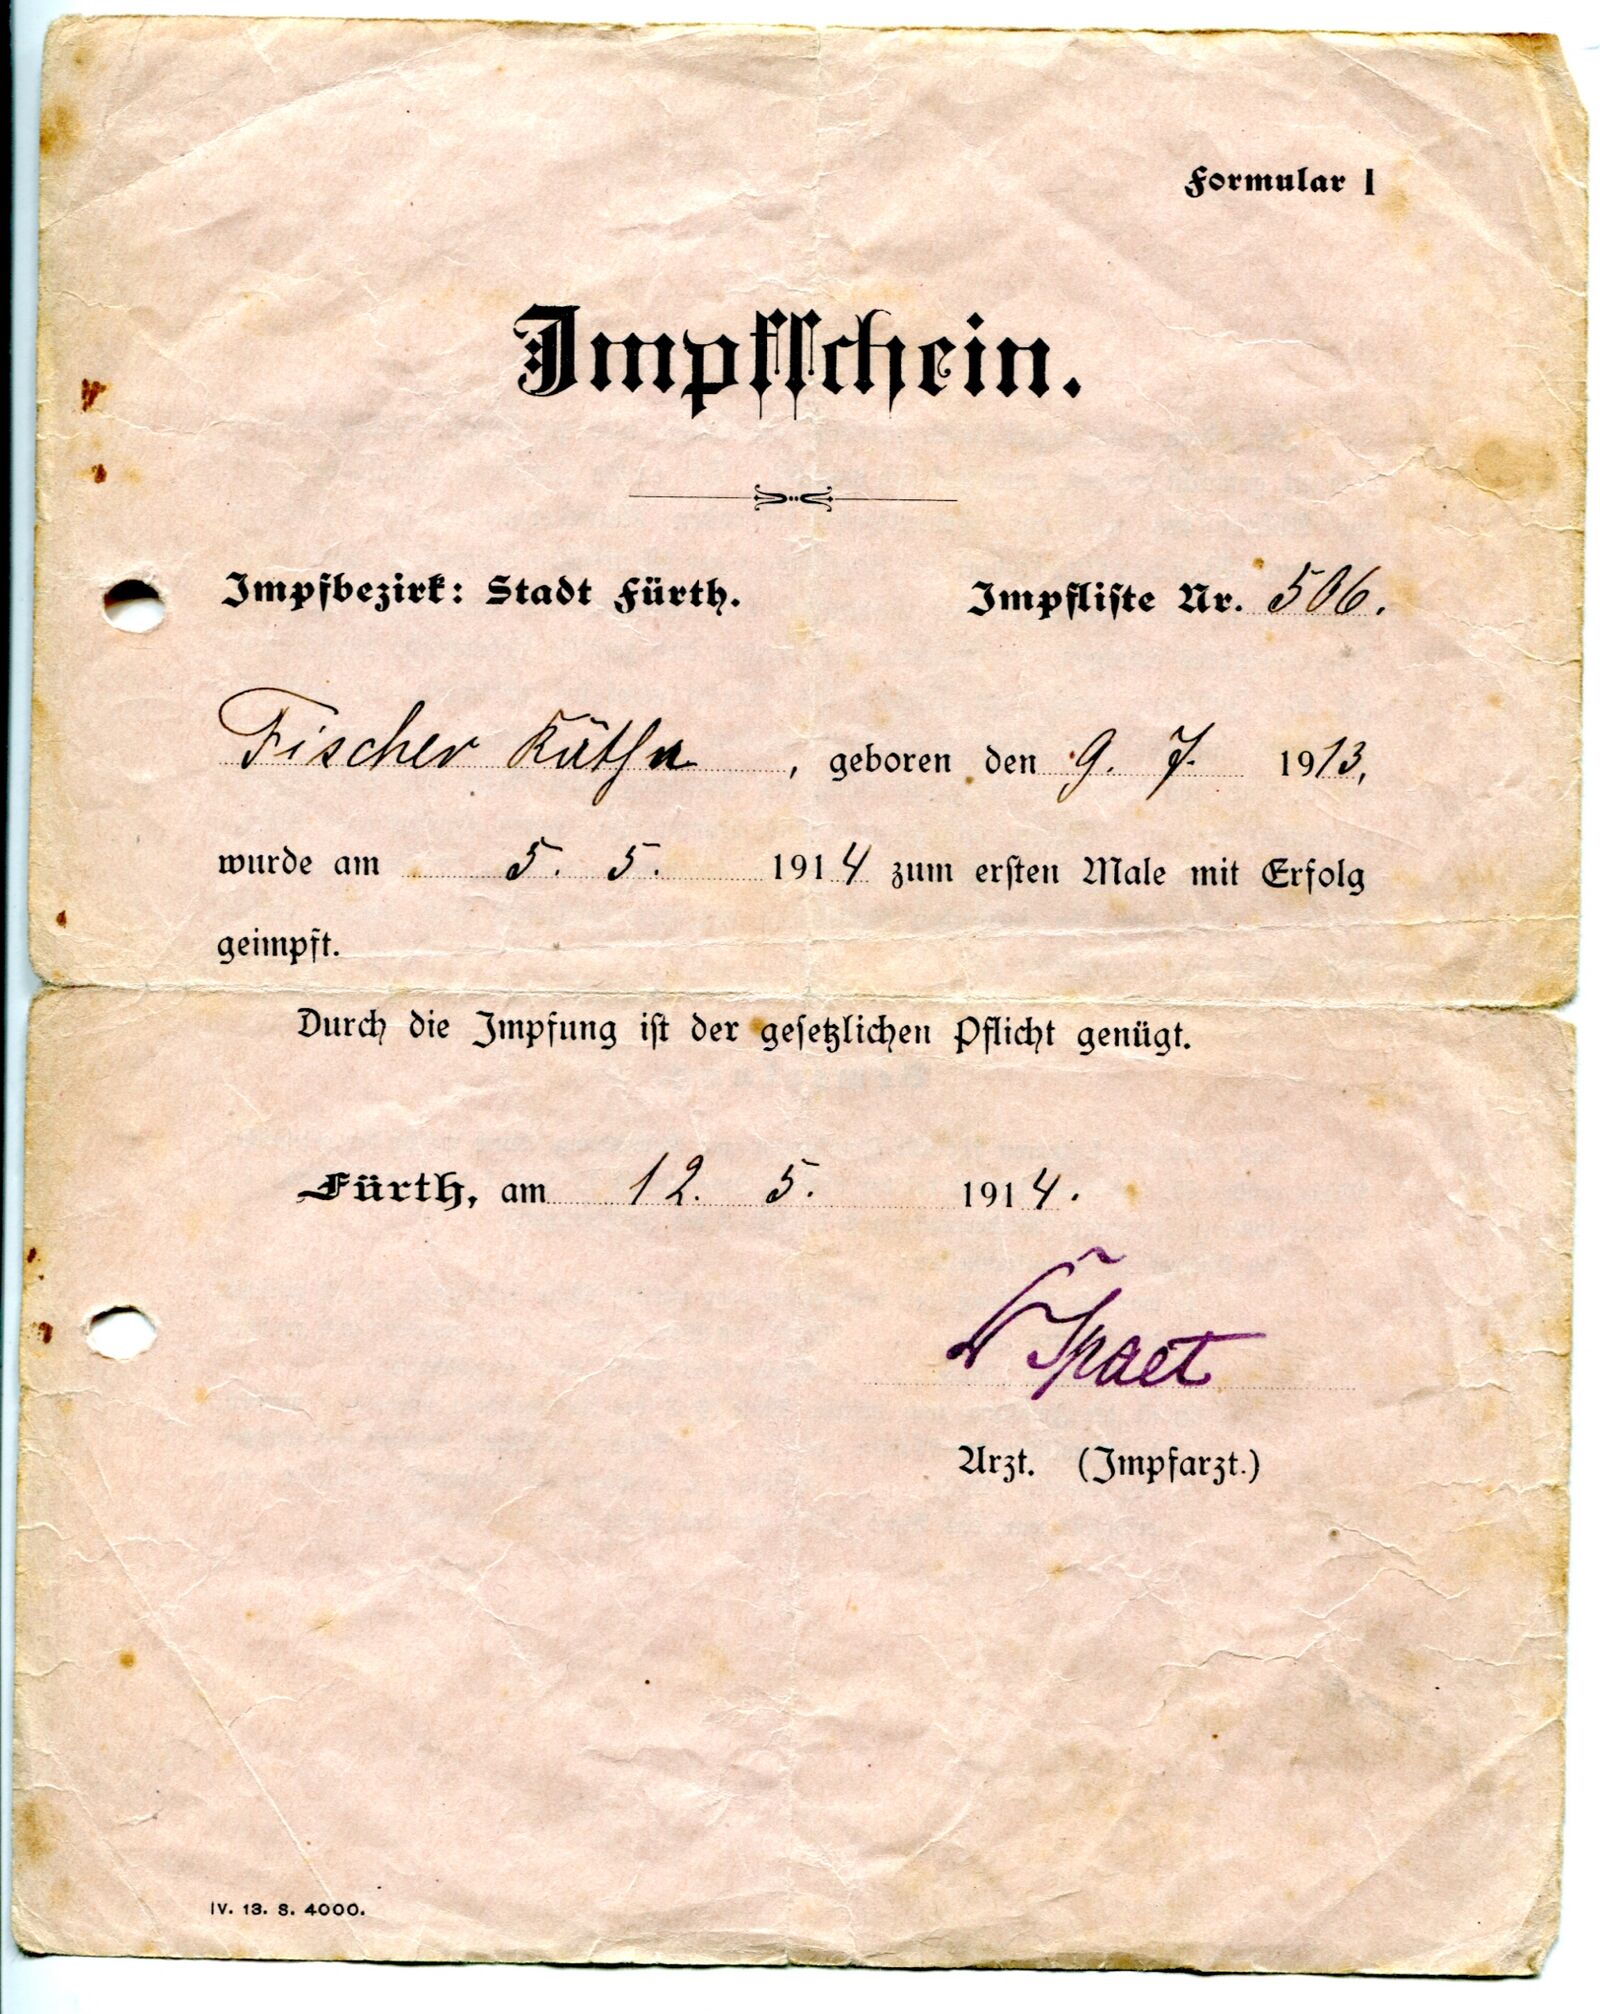 Formular I
Impfschein.
Impfbezirk: Stadt Fürth.
Impfliste Nr. 506.
Fischer Käthe, geboren den 9. 7. 1913,
wurde am 5. 5. 1914 zum ersten Male mit Erfolg
geimpft.
Durch die Impfung ist der gesetzlichen Pflicht genügt.
Fürth, am 12. 5. 1914.
Dr Spaet
Arzt. (Impfarzt.)
IV. 13. S. 4000.